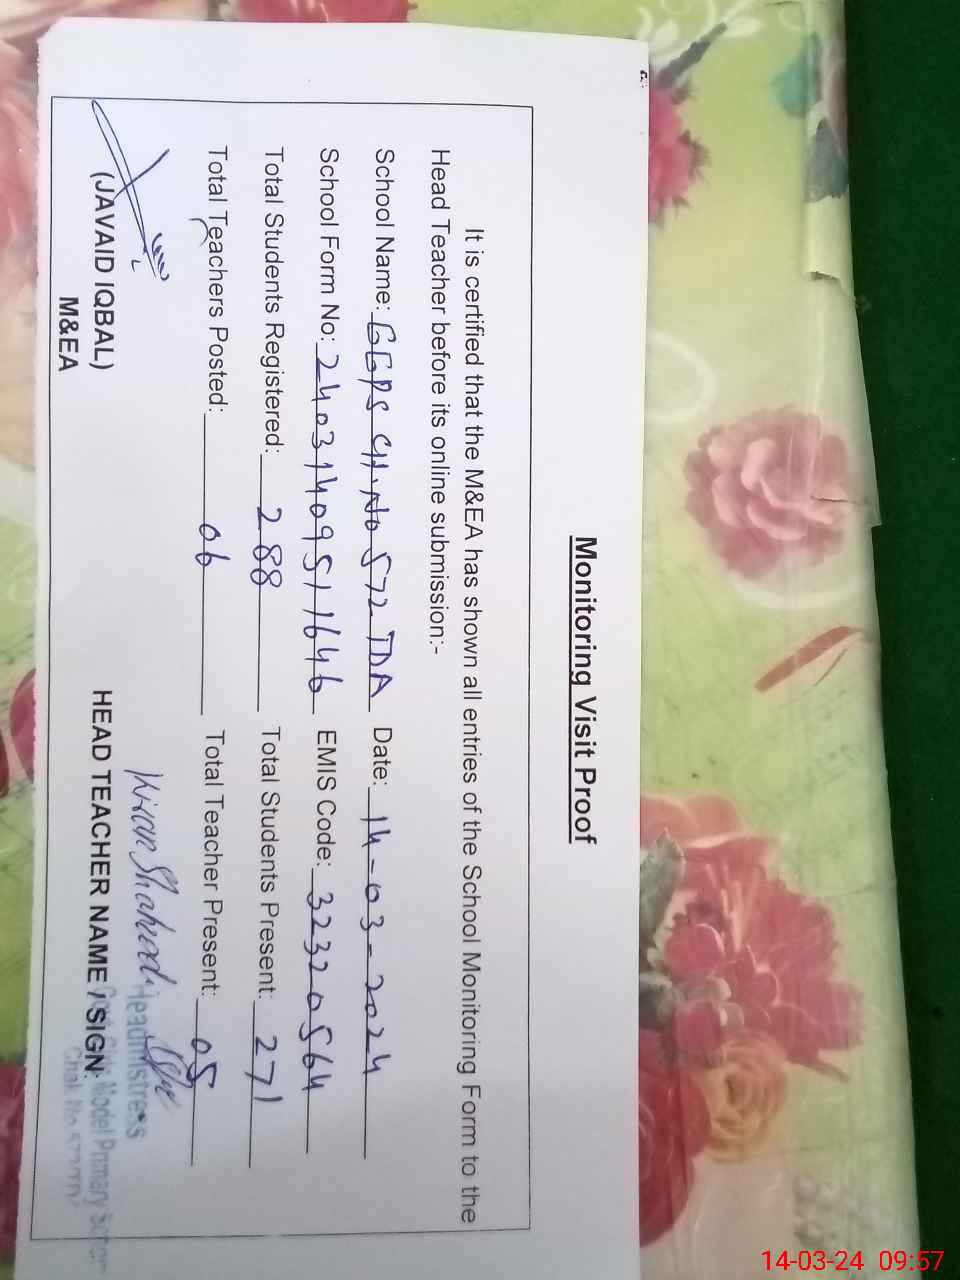 Monitoring Visit Proof
It is certified that the M&EA has shown all entries of the School Monitoring Form to the
Head Teacher before its online submission:-
School Name: GGPS CH.No 572 TDA Date: 14-03-2024
School Form No: 2403140951646 EMIS Code: 32320564
Total Students Registered: 288 Total Students Present: 271
Total Teachers Posted: 06 Total Teacher Present: 05
Kiran Shahzadi
Headmistress
(JAVAID IQBAL) HEAD TEACHER NAME / SIGN:
M&EA
Model Primary
Chak No 572/TDA
14-03-24 09:57